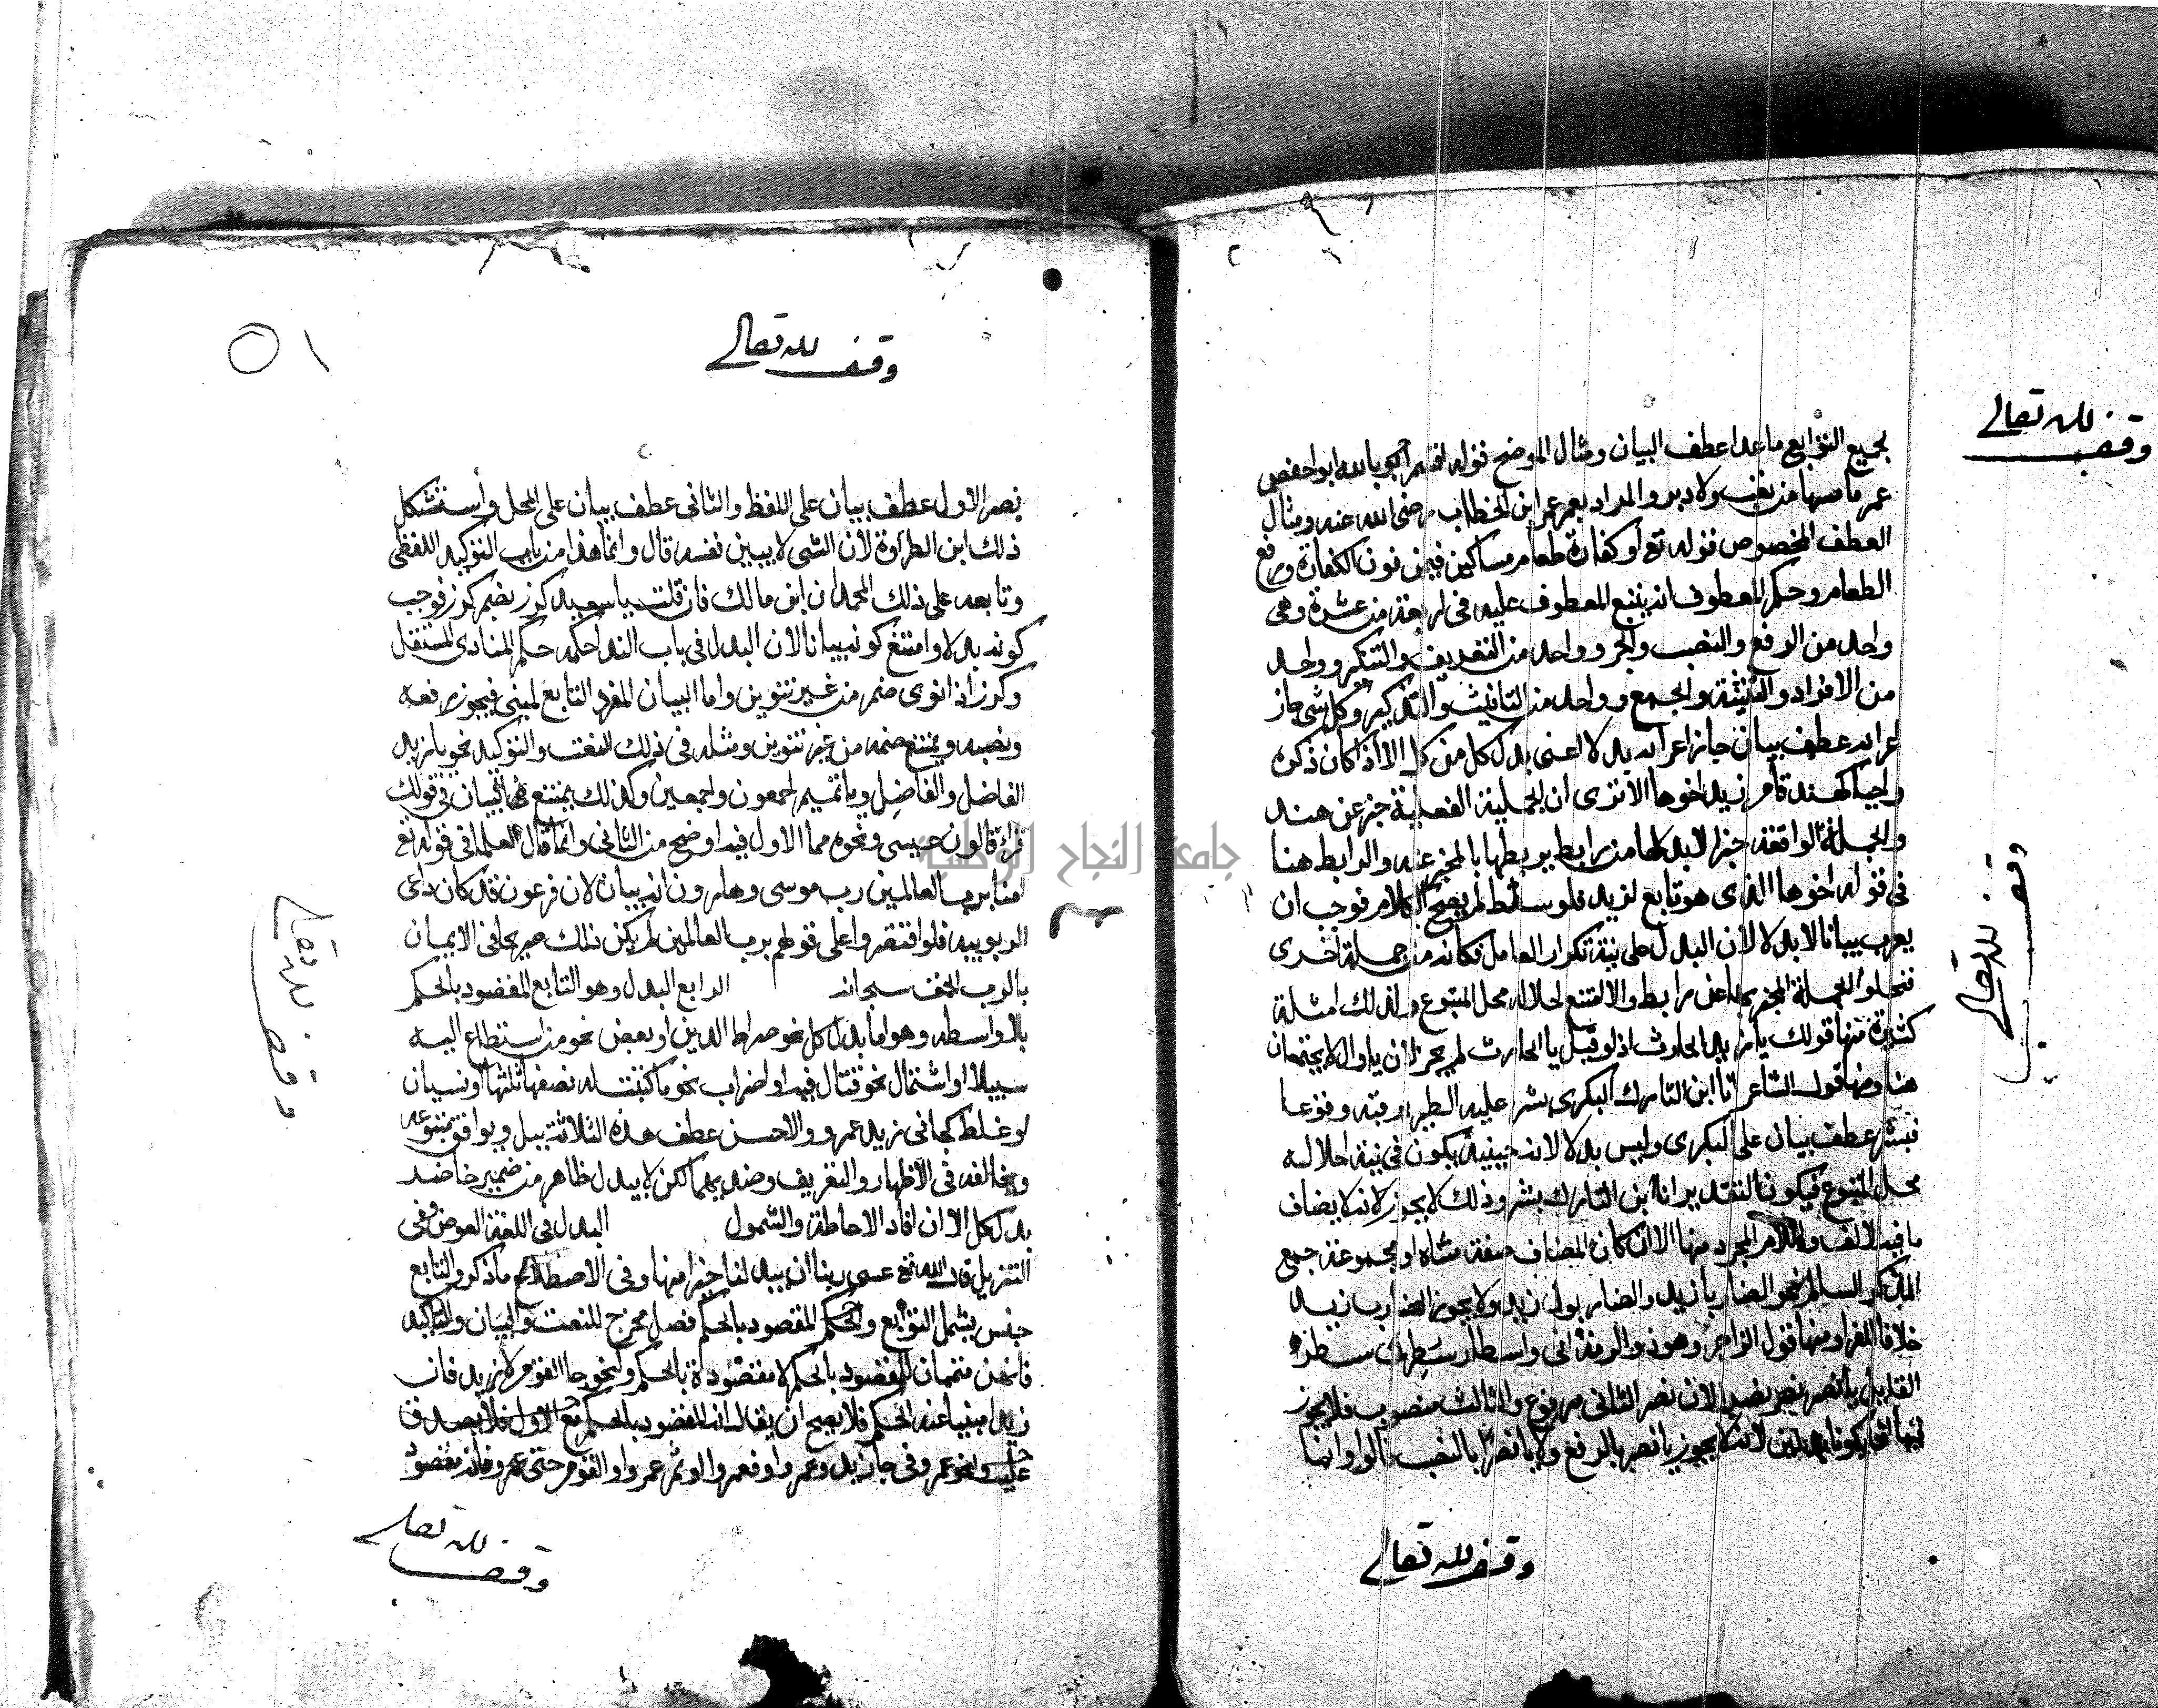 وقف لله تعالى
لجميع التوابع ماعدا عطف البيان ومثال الموضح قوله اقسم بالله ابو حفص
عمر ما مسها من نقب ولا دبر والمراد بعمر عمر ابن الخطاب رضى الله عنه ومثال
العطف المخصوص قوله تع او كفارة طعام مساكين فيمن نون الكفارة ورفع
الطعام وحكم المعطوف انه يتبع المعطوف عليه فى اربعة من عشرة وهى
واحد من الرفع والنصب والجر وواحد من التعريف والتنكير وواحد
من الافراد والتثنية والجمع وواحد من التانيث والتذكير وكل شى جاز
اعرابه عطف بيان جاز اعرابه بدلا اعنى بدل كل من كل الا اذا كان ذكره
واجبا كهند قام زيد اخوها الا ترى ان الجملة الفعلية خبر عن هند
والجملة الواقعة خبرا لابد لها من رابط يربطها بالمخبر عنه والرابط هنا
فى قوله اخوها الذى هو تابع لزيد فلو سقط لم يصح الكلام فوجب ان
يعرب بيانا لا بدلا لان البدل على نية تكرار العامل فكانه من جملة اخرى
فتخلوا الجملة المخبر بها عن رابط والا لامتنع احلاله محل المتبوع ولذلك امثلة
كثيرة منها قولك يا زيد الحارث اذ لو قيل يا الحارث لم يجز لان يا وال لا يجتمعان
هنا ومنها قول الشاعر انا ابن التارك البكرى بشر عليه الطير ترقبه وقوعا
فبشر عطف بيان على البكرى وليس بدلا لانه حينئذ يكون فى نية احلاله
محل المتبوع فيكون التقدير انا ابن التارك بشر وذلك لا يجوز لانه لا يضاف
ما فيه الالف واللام المجرد منها الا ان كان المضاف صفة مثناه او مجموعة جمع
المذكر السالم نحو الضاربا زيد والضاربوا زيد ولا يجوز الضارب زيد
خلافا للفرا ومنها قول الراجز وهو ذو الرمة انى واسطار سطرن سطرا
لقايل يا نصر نصر نصرا لان نصر الثانى مرفوع والثالث منصوب فلا يجوز
فيهما ان يكونا بدلين لانه لا يجوز يا نصر بالرفع ولا يا نصرا بالنصب قالوا وانما
وقف لله تعالى
وقف لله تعالى
وقف لله تعالى
٥١
نصر الاول عطف بيان على اللفظ والثانى عطف بيان على المحل واستشكل
ذلك ابن الطراوة لان الشى لا يبين نفسه قال وانما هذا من باب التوكيد اللفظى
وتابعه على ذلك المحمدان ابن مالك فان قلت يا سعيد كرز بضم كرز وجب
كونه بدلا وامتنع كونه بيانا لان البدل فى باب الندا حكمه حكم المنادى المستقل
وكرز اذا نوى ضم من غير تنوين واما البيان المفرد التابع لمبنى فيجوز رفعه
ونصبه ويمتنع ضمه من غير تنوين ومثله فى ذلك النعت والتوكيد نحو يا زيد
الفاضل والفاضل ويا تميم اجمعون واجمعين وكذلك يمتنع البيان فى قولك
قرا قالون عيسى ونحوه مما الاول فيه اوضح من الثانى وانما قال العلما فى قوله تع
امنا برب العالمين رب موسى وهارون انه بيان لان فرعون قد كان داعى
الربوبيه فلو اقتصروا على قولهم برب العالمين لم يكن ذلك صريحا فى الايمان
بالرب الحق سبحانه الرابع البدل وهو التابع المقصود بالحكم
بلا واسطه وهو اما بدل كل نحو صراط الذين او بعض نحو من استطاع اليه
سبيلا او اشتمال نحو قتال فيه او اضراب نحو ما كتبت له نصفها ثلثها او نسيان
او غلط كجانى زيد عمرو والاحسن عطف هذه الثلاثة ببل ويوافق متبوعه
ويخالفه فى الاظهار والتعريف وضديهما لكن لا يبدل ظاهر من ضمير حاضر
بدل كل الا ان افاد الاحاطة والشمول البدل فى اللغة العوض وفى
التنزيل قال الله تع عسى ربنا ان يبدلنا خيرا منها وفى الاصطلاح ما ذكر والتابع
جنس يشمل التوابع والمقصود بالحكم فصل مخرج للنعت والبيان والتاكيد
فانهن متممان للمقصود بالحكم لا مقصودة بالحكم ولنحو جا القوم لا زيد فان
زيدا منفيا عنه الحكم فلا يصح ان يقال انه المقصود بالحكم
عليه ولنحو عمرو فى جا زيد وعمرو او فعمرو او ثم عمرو او القوم حتى عمرو فانه مقصود
وقف لله تعالى
وقف لله تعالى
جامعة النجاح الوطنية